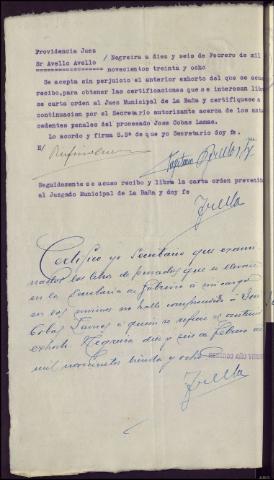 Providencia Juez
Sr Avello Avello / Negreira a diez y seis de Febrero de mil
================ novecientos treinta y ocho
Se acepta sin perjuicio el anterior exhorto del que se acuse
recibo, para obtener las certificaciones que se interesan libre
se carta orden al Juez Municipal de La Baña y certifiquese a
continuacion por el Secretario autorizante acerca de los ante
cedentes penales del procesado Jose Cobas Lamas.
Lo acordo y firma S.Sª de que yo Secretario doy fe.
E/
Seguidamente se acuso recibo y libra la carta orden prevenida
al Juzgado Municipal de La Baña y doy fe
Certifico yo Secretario que exami
nados los libros de penados que se llevan
en la Secretaria de gobierno a mi cargo
en los mismos no hallo comprendido a Jose
Cobas Lamas a quien se refiere el anterior
exhorto Negreira diez y seis de febrero de
mil novecientos treinta y ocho